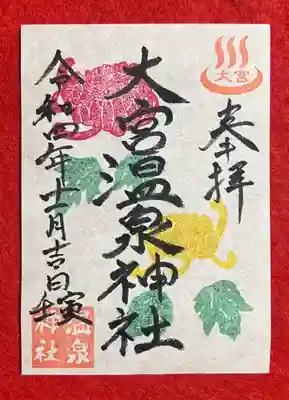 大宮
奉拝
大宮温泉神社
令和四年十一月吉日
壬寅
温泉
神社